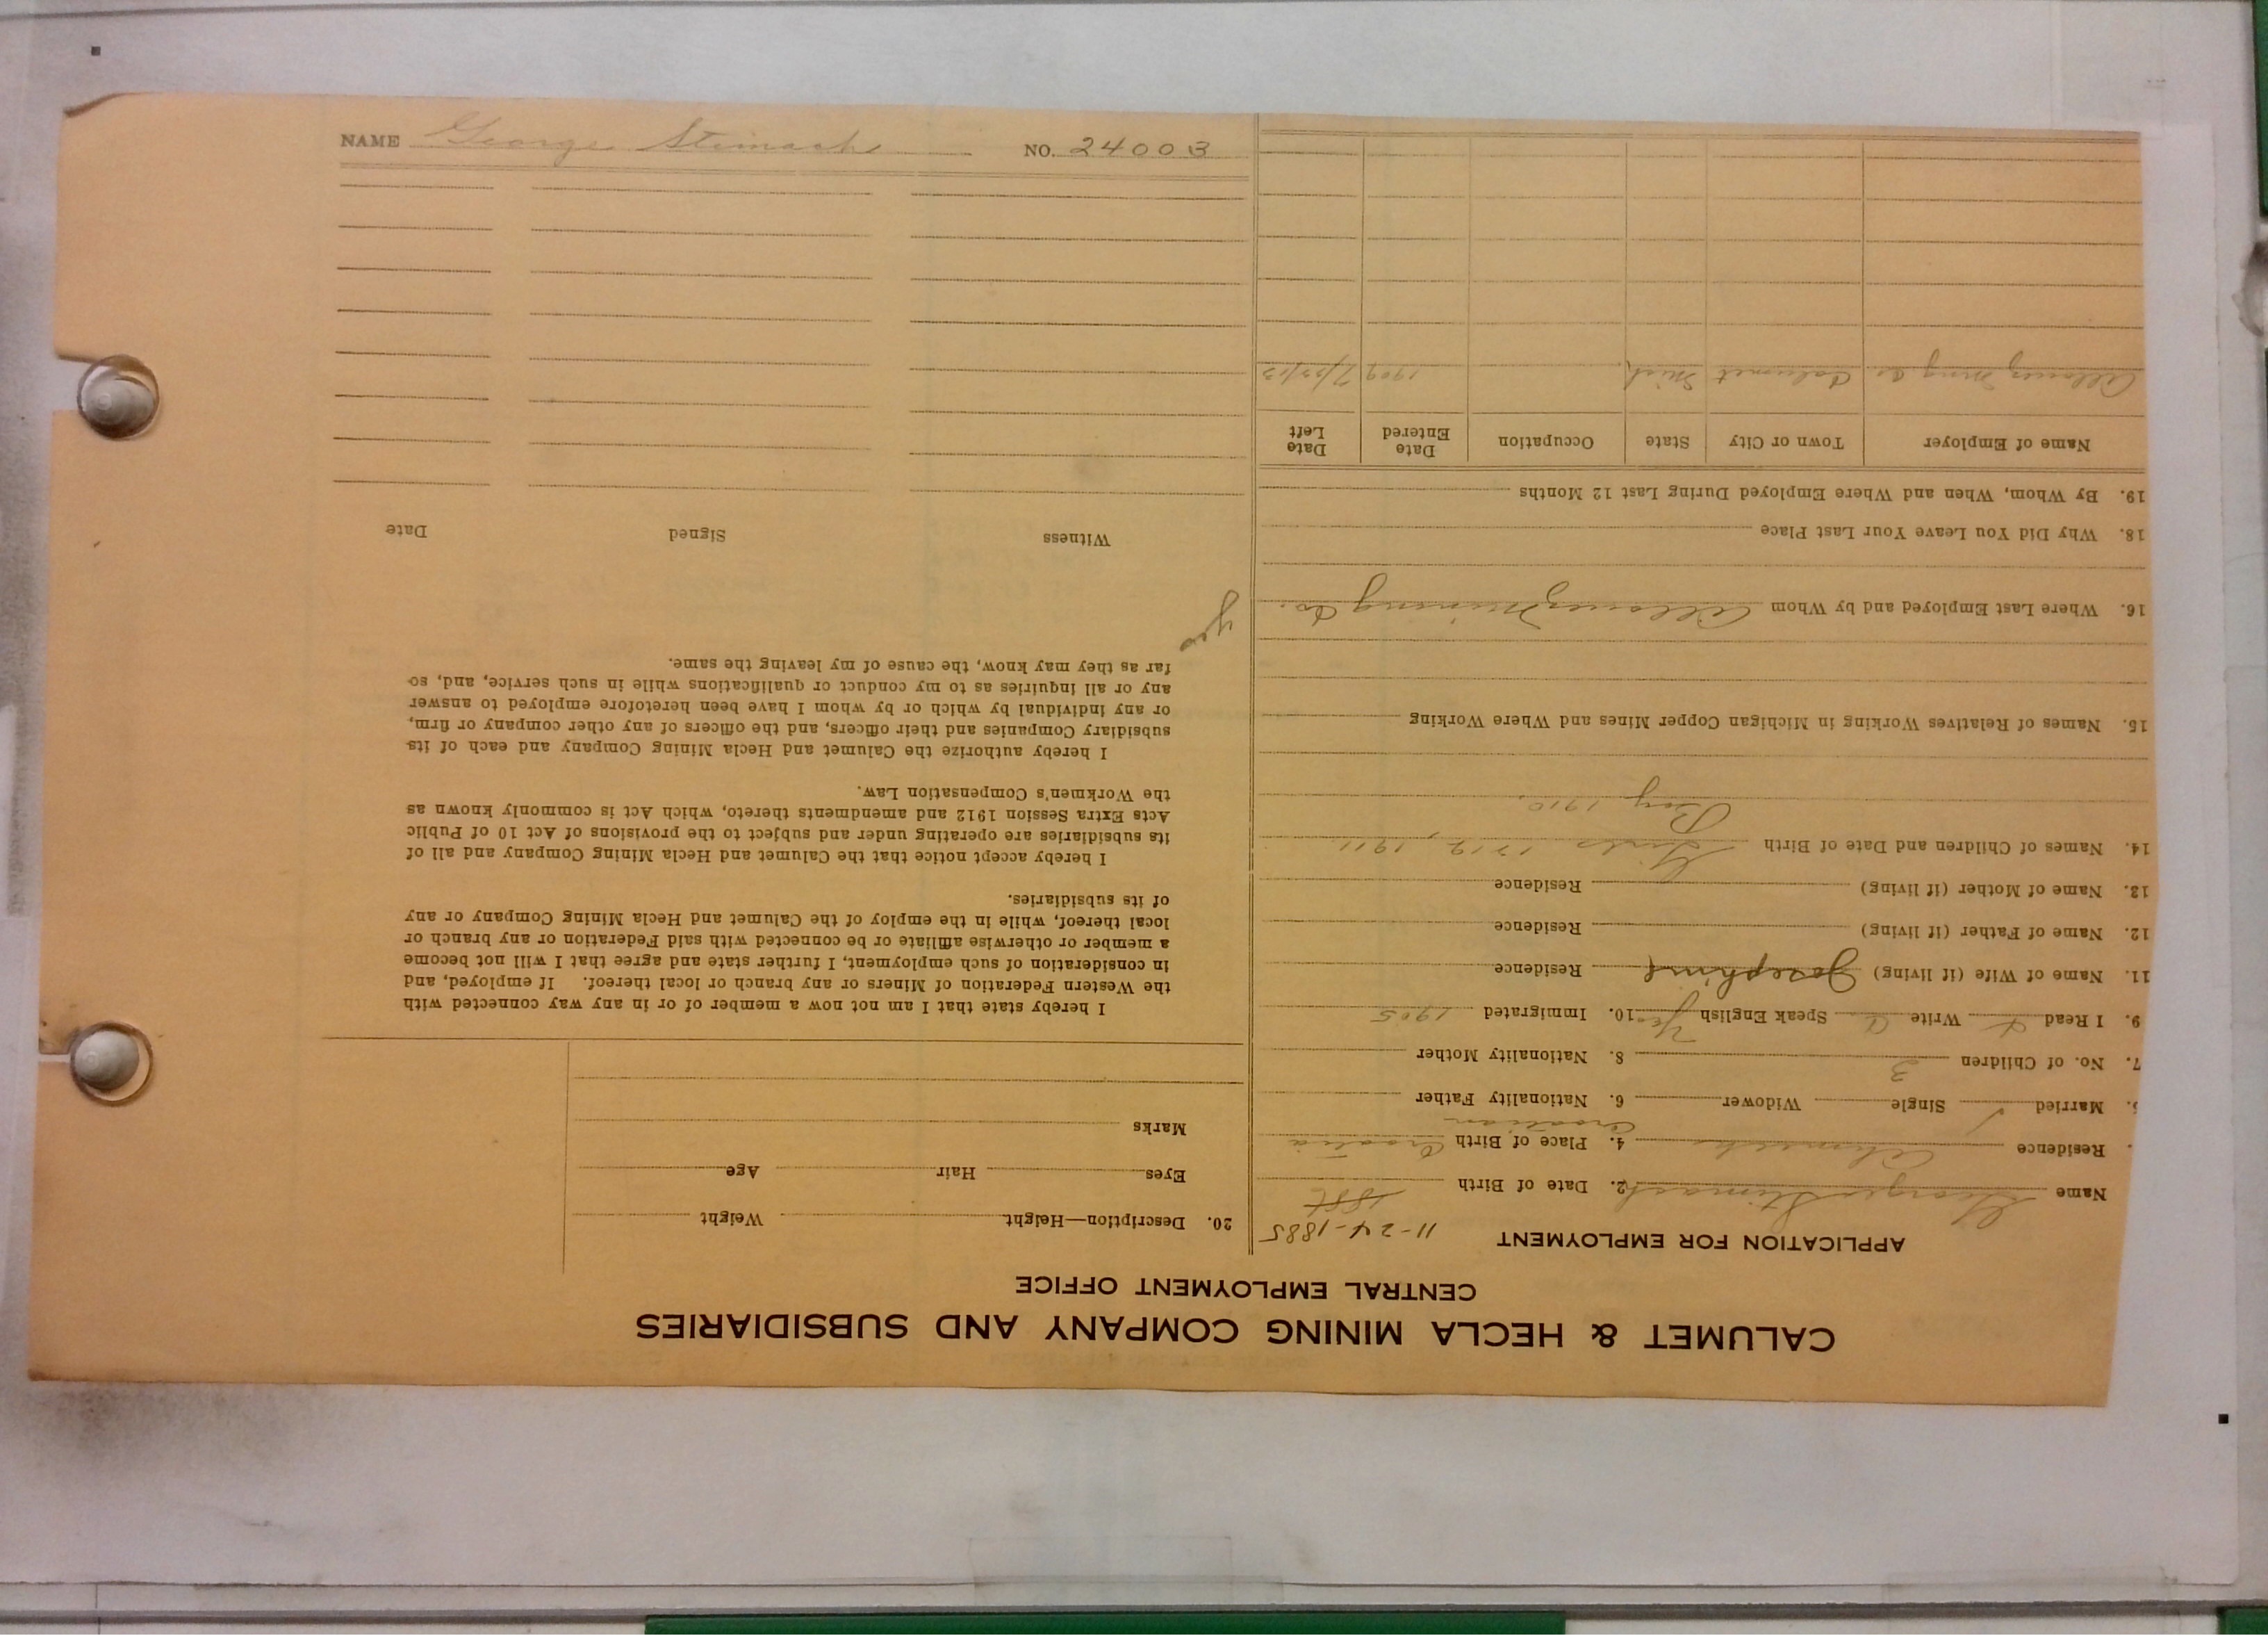 CALUMET & HECLA MINING COMPANY AND SUBSIDIARIES
CENTRAL EMPLOYMENT OFFICE
APPLICATION FOR EMPLOYMENT
11-24-1885
Name George Stimach 2. Date of Birth
Residence Ahmeek 4. Place of Birth Croatia
Croatian
Married ✓ Single Widower 6. Nationality Father
7. No. of Children 3 8. Nationality Mother
9. I Read Write Speak English Yes 10. Immigrated 1905
11. Name of Wife (if living) Josephine Residence
12. Name of Father (if living) Residence
13. Name of Mother (if living) Residence
14. Names of Children and Date of Birth Girls 1912, 1911
Boy 1910.
15. Names of Relatives Working in Michigan Copper Mines and Where Working
16. Where Last Employed and by Whom Allouez Mining Co.
18. Why Did You Leave Your Last Place
19. By Whom, When and Where Employed During Last 12 Months
Name of Employer Town or City State Occupation Date Entered Date Left
Allouez Mng Co Calumet Mich 1909 7/23/13
20. Description—Height Weight
Eyes Hair Age
Marks
I hereby state that I am not now a member of or in any way connected with
the Western Federation of Miners or any branch or local thereof. If employed, and
in consideration of such employment, I further state and agree that I will not become
a member or otherwise affiliate or be connected with said Federation or any branch or
local thereof, while in the employ of the Calumet and Hecla Mining Company or any
of its subsidiaries.
I hereby accept notice that the Calumet and Hecla Mining Company and all of
its subsidiaries are operating under and subject to the provisions of Act 10 of Public
Acts Extra Session 1912 and amendments thereto, which Act is commonly known as
the Workmen's Compensation Law.
I hereby authorize the Calumet and Hecla Mining Company and each of its
subsidiary Companies and their officers, and the officers of any other company or firm,
or any individual by which or by whom I have been heretofore employed to answer
any or all inquiries as to my conduct or qualifications while in such service, and, so
far as they may know, the cause of my leaving the same.
Yes
Witness Signed Date
NAME George Stimach NO. 24003